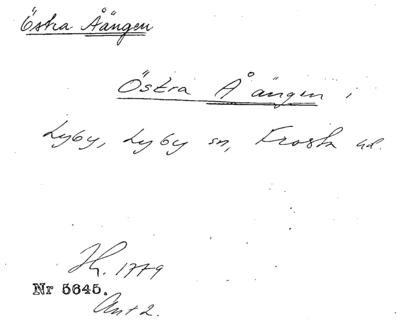 Östra Åängen
Östra Åängen i
Lyby, Lyby sn, Frosta hd.
Jk. 1779
Nr 5645.
Ant 2.